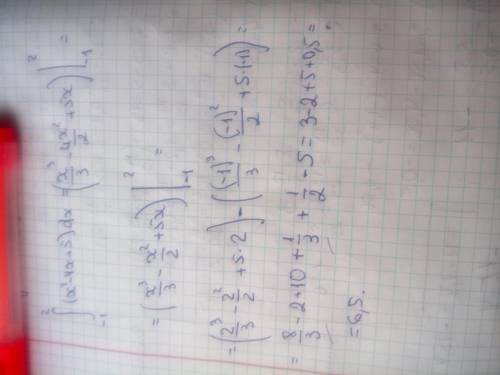 ∫₋₁² (x²-4x+5)dx = (x³/3 - 4x²/2 + 5x)|₋₁² =
= (x³/3 - x²/2 + 5x)|₋₁² =
= (2³/3 - 2²/2 + 5·2) - ((-1)³/3 - (-1)²/2 + 5·(-1)) =
= 8/3 - 2 + 10 + 1/3 + 1/2 - 5 = 3 - 2 + 5 + 0,5 =
= 6,5.